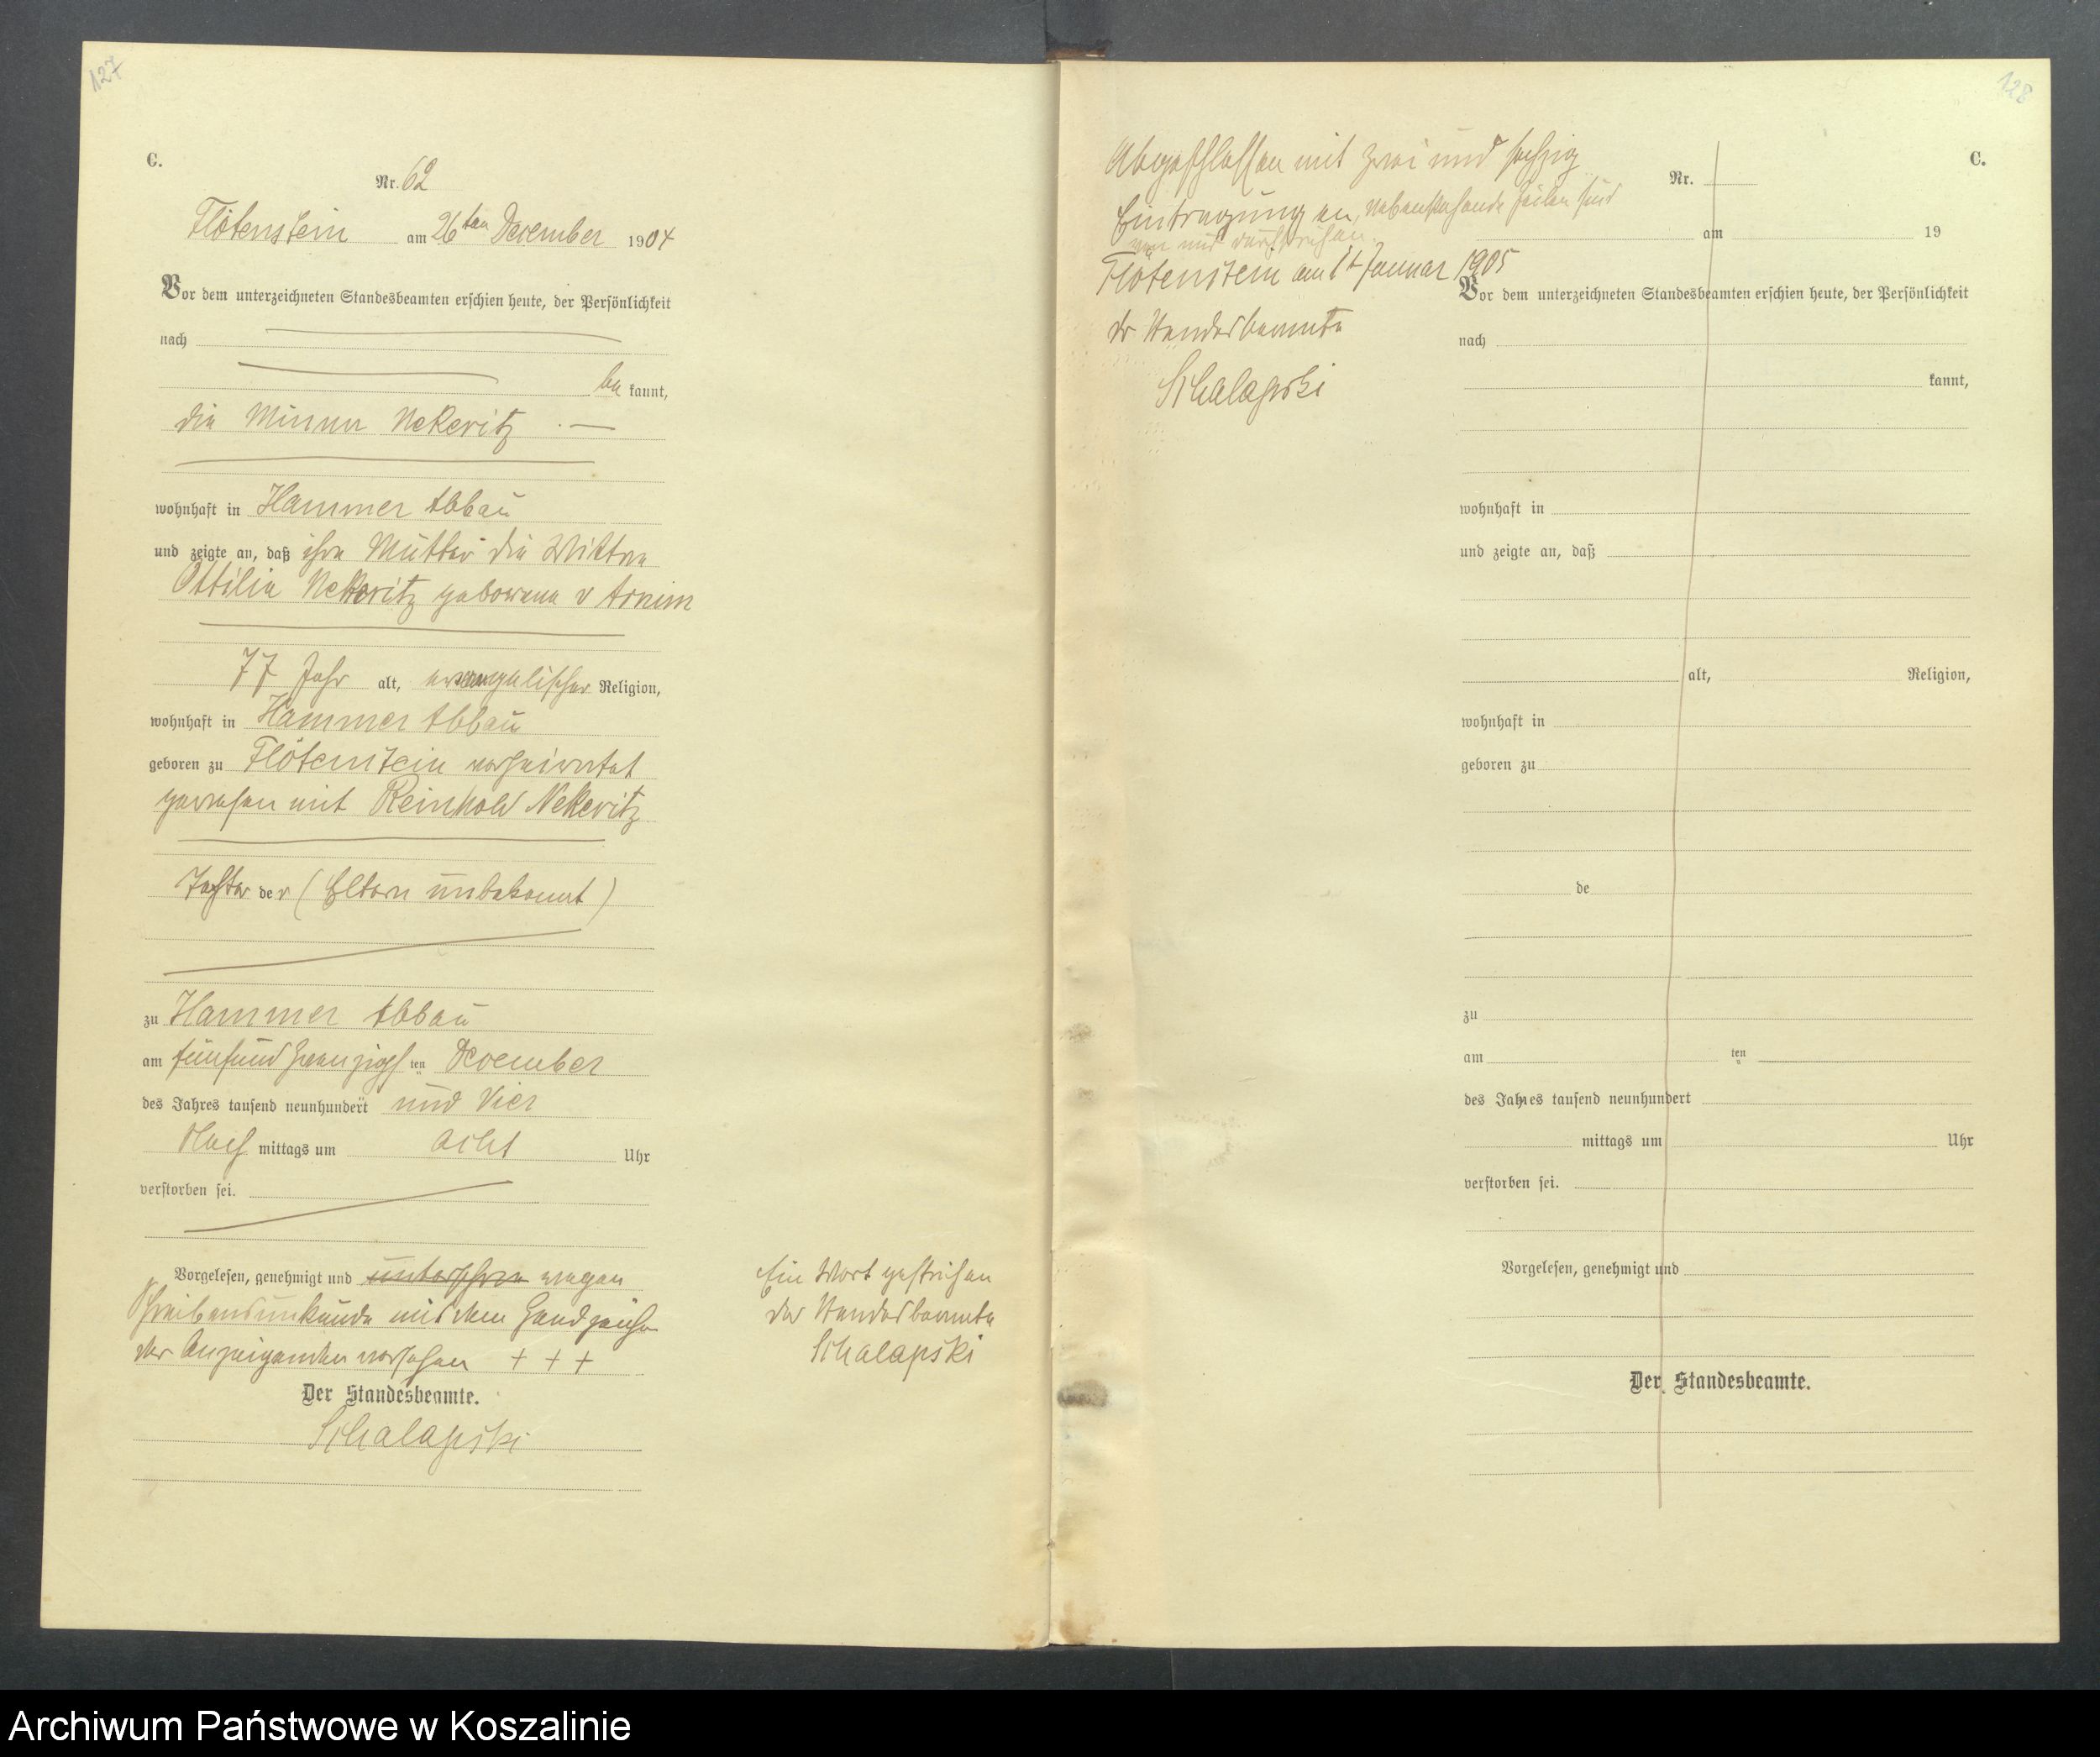 127
C.
Nr. 62
Flötenstein am 26ten December 1904
Vor dem unterzeichneten Standesbeamten erschien heute, der Persönlichkeit
nach
be kannt,
die Minna Nekeritz
wohnhaft in Hammer Abbau
und zeigte an, daß ihre Mutter die Wittwe
Ottilie Nekeritz geborene v Arnim
77 Jahr alt, evangelischer Religion,
wohnhaft in Hammer Abbau
geboren zu Flötenstein verheirathet
gewesen mit Reinhold Nekeritz
Tochter der (Eltern unbekannt)
zu Hammer Abbau
am fünfundzwanzigs ten December
des Jahres tausend neunhundert und Vier
Nach mittags um acht Uhr
verstorben sei.
Vorgelesen, genehmigt und wegen
Schreibensunkunde mit dem Handzeichen
der Anzeigenden versehen + + +
Der Standesbeamte.
Schalapski
Ein Wort gestrichen
der Standesbeamte
Schalapski
128
Abgeschlossen mit zwei und sechzig
Eintragungen, nebenstehende Zeilen sind
von mir durchstrichen.
Flötenstein am 1t Januar 1905
der Standesbeamte
Schalapski
C.
Nr.
am 19
Vor dem unterzeichneten Standesbeamten erschien heute, der Persönlichkeit
nach
kannt,
wohnhaft in
und zeigte an, daß
alt, Religion,
wohnhaft in
geboren zu
de
zu
am ten
des Jahres tausend neunhundert
mittags um Uhr
verstorben sei.
Vorgelesen, genehmigt und
Der Standesbeamte.
Archiwum Państwowe w Koszalinie